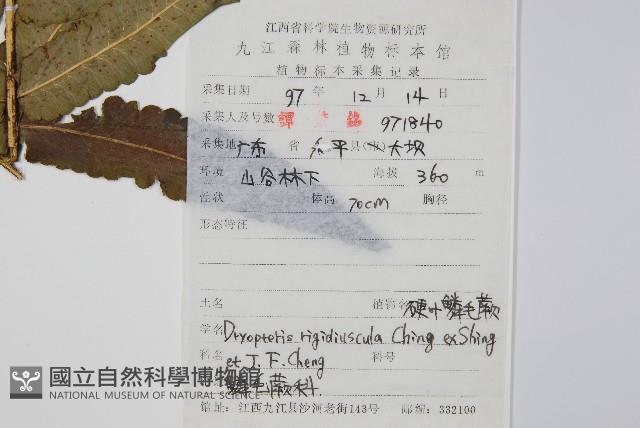 江西省科学院生物资源研究所
九江森林植物标本馆
植物标本采集记录
采集日期 97 年 12 月 14 日
采集人及号数 譚 971840
采集地 广东 省 和平 县(市) 大坝
环境 山谷林下 海拔 360 m
性状 体高 70cm 胸径
形态特征
土名 植物名 硬叶鳞毛蕨
学名 Dryopteris rigidiuscula Ching ex Shing
科名 et J. F. Cheng 科号
鳞毛蕨科.
馆址:江西九江县沙河老街143号 邮编:332100
國立自然科學博物館
NATIONAL MUSEUM OF NATURAL SCIENCE